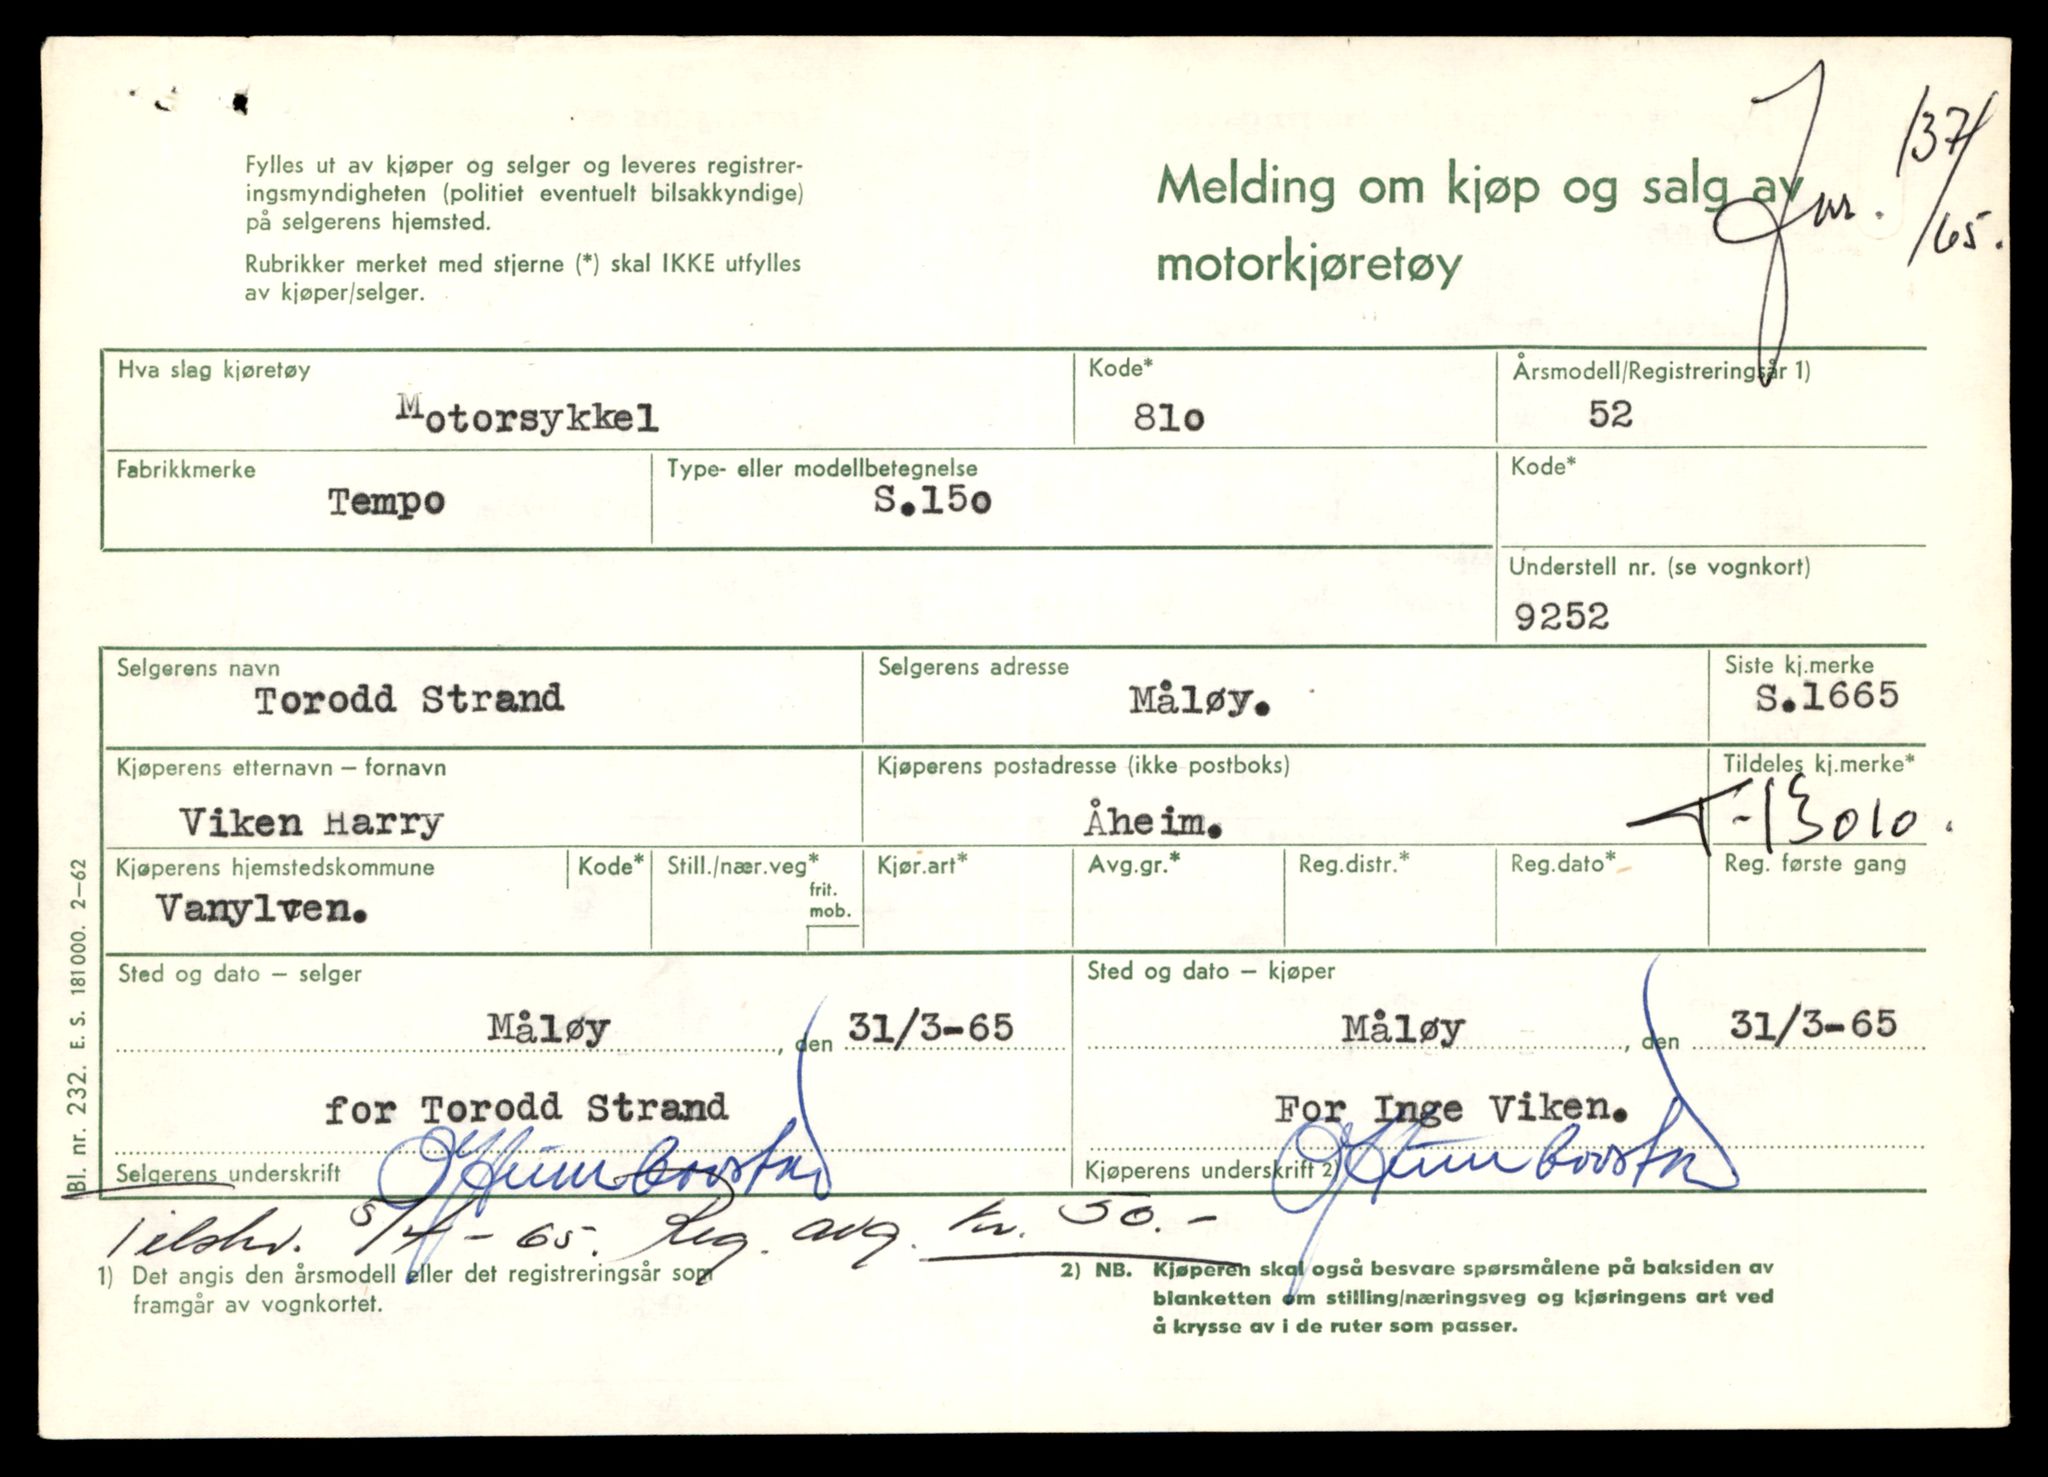 Fylles ut av kjøper og selger og leveres registrer-
ingsmyndigheten (politiet eventuelt bilsakkyndige)
på selgerens hjemsted.
Rubrikker merket med stjerne (*) skal IKKE utfylles
av kjøper/selger.
Melding om kjøp og salg av
motorkjøretøy
Jnr. 137/65.
Hva slag kjøretøy
Motorsykkel
Kode*
81o
Årsmodell/Registreringsår 1)
52
Fabrikkmerke
Tempo
Type- eller modellbetegnelse
S.15o
Kode*
Understell nr. (se vognkort)
9252
Selgerens navn
Torodd Strand
Selgerens adresse
Måløy.
Siste kj.merke
S.1665
Kjøperens etternavn – fornavn
Viken Harry
Kjøperens postadresse (ikke postboks)
Åheim.
Tildeles kj.merke*
T-13010.
Kjøperens hjemstedskommune
Vanylven.
Kode*
Still./nær.veg*
frit.
mob.
Kjør.art*
Avg.gr.*
Reg.distr.*
Reg.dato*
Reg. første gang
Sted og dato – selger
Måløy, den 31/3-65
for Torodd Strand
Selgerens underskrift
Sted og dato – kjøper
Måløy, den 31/3-65
For Inge Viken.
Kjøperens underskrift 2)
Tilskr. 5/4-65. Reg. avg. kr. 50.-
1) Det angis den årsmodell eller det registreringsår som
framgår av vognkortet.
2) NB. Kjøperen skal også besvare spørsmålene på baksiden av
blanketten om stilling/næringsveg og kjøringens art ved
å krysse av i de ruter som passer.
Bl. nr. 232. E. S. 181 000. 2–62